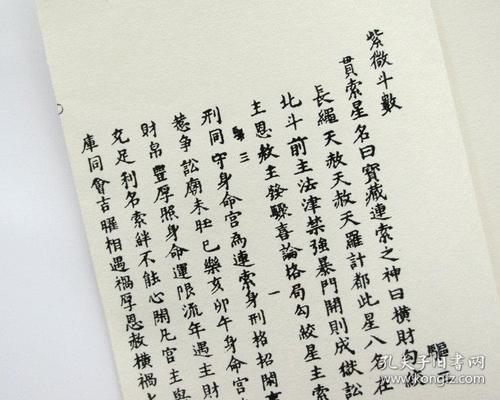 紫微斗數
貫索星名曰寶藏連索之神曰橫財勾絞
長繩天赦天赦天羅計都此星八名在
北斗前主法津禁強暴門開則成獄訟
主恩赦主發驟喜論格局勾絞星主索
一
三
刑同守身命宮為連索身刑格招閑
惹爭訟廟未旺巳樂亥卯午身命宮
財帛豐厚照身命運限流年遇主財
充足利名索絆不能心閑凡宮主與
庫同會吉曜相遇禍厚恩赦橫禍
驅
孔夫子旧书网
www.kongfz.com